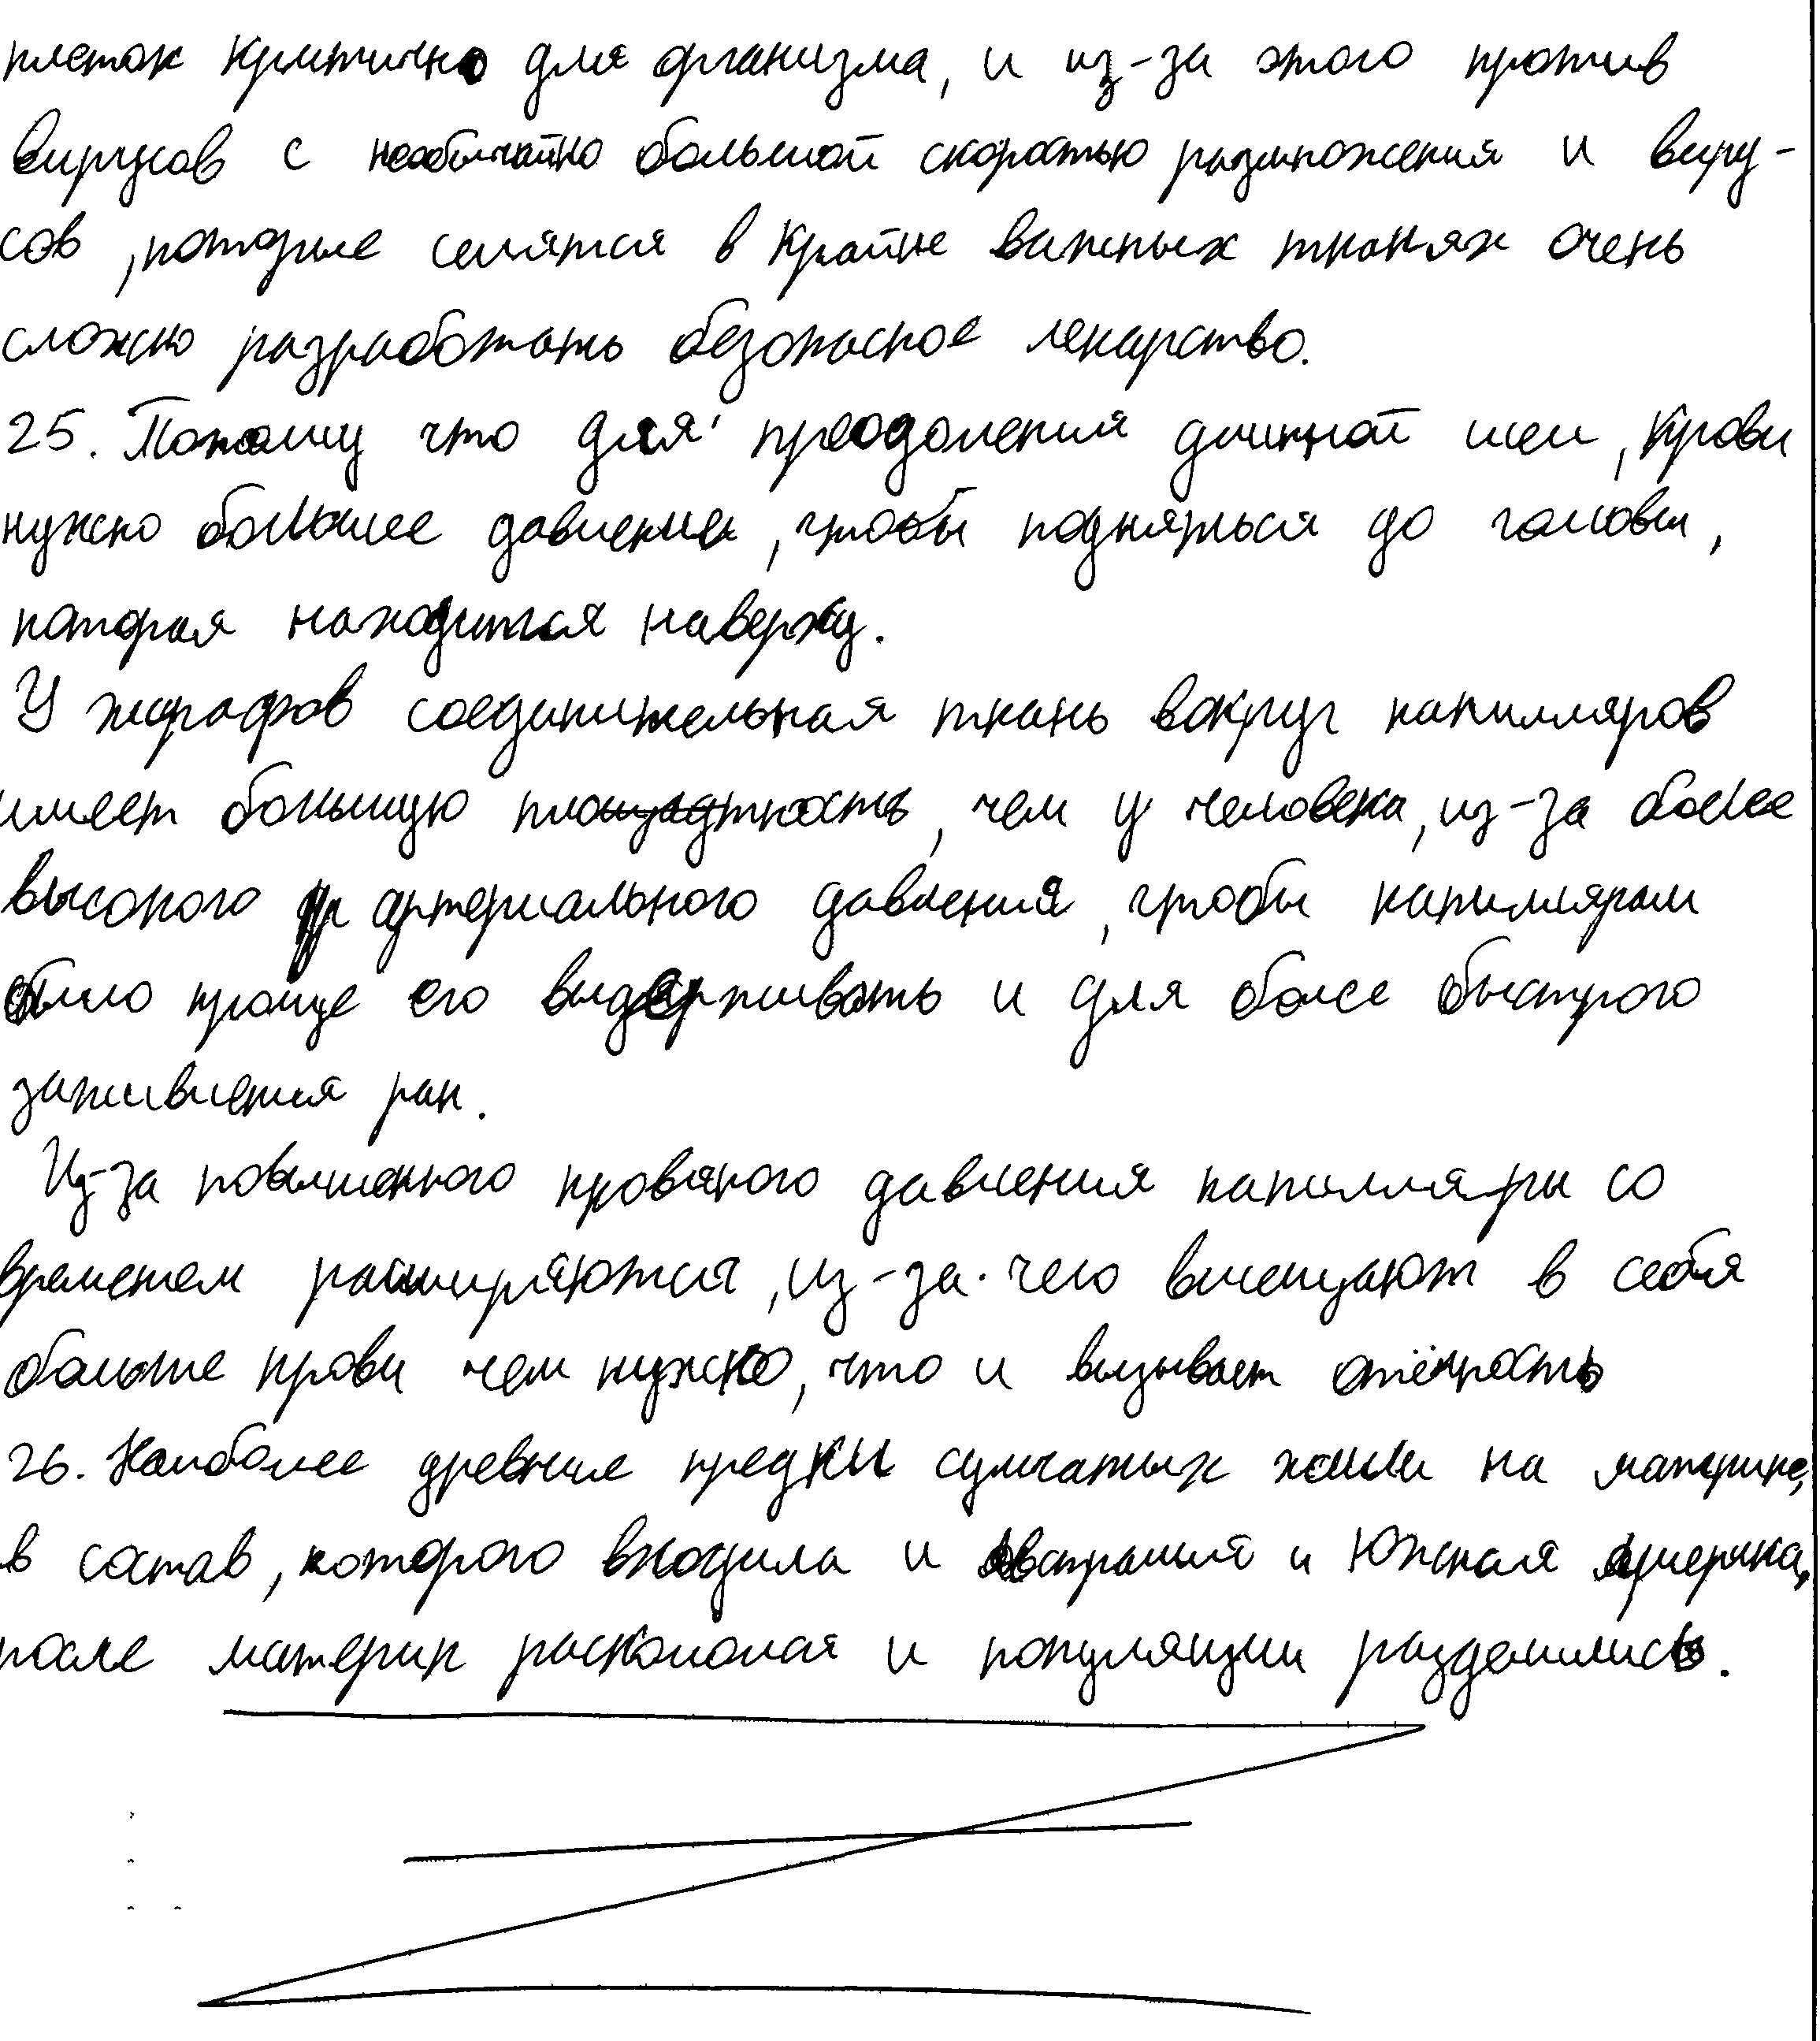 клеток критично для организма, и из-за этого против
вирусов с необычайно большой скоростью размножения и виру-
сов, которые селятся в крайне важных тканях очень
сложно разработать безопасное лекарство.
25. Потому что для преодоления длинной шеи, крови
нужно большее давление, чтобы подняться до головы,
которая находится наверху.
У жирафов соединительная ткань вокруг капилляров
имеет большую плотность, чем у человека, из-за более
высокого артериального давления, чтобы капиллярам
было проще его выдерживать и для более быстрого
заживления ран.
Из-за повышенного кровяного давления капилляры со
временем расширяются, из-за чего вмещают в себя
больше крови чем нужно, что и вызывает отёчность
26. Наиболее древние предки сумчатых жили на материке,
в состав, которого входила и Австралия и Южная Америка,
после материк раскололся и популяции разделились.